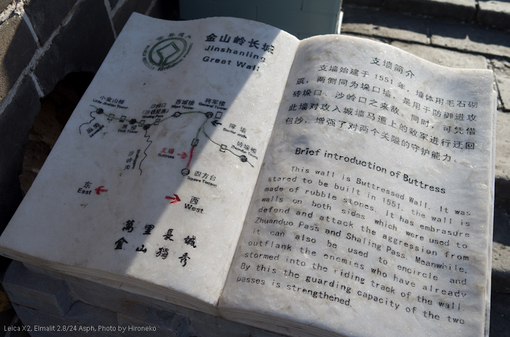 金山岭长城
Jinshanling
Great Wall
支墙
四方台
东
East
西
West
萬里長城
金山獨秀
支墙简介
支墙始建于1551年，墙体用毛石砌
筑，两侧同为垛口墙，是用于防御进攻
砖垛口、沙岭口之来敌，同时，可凭借
此墙对攻入城墙马道上的敌家进行迂回
包沙，增强了对两个关隘的守护能力。
Brief introduction of Buttress
This wall is Buttressed Wall. It was
stored to be built in 1551, the wall is
made of rubble stones, it has embrasure
walls on both sides which were used to
defend and attack the aggression from
Zhuanduo Pass and Shaling Pass. Meanwhile,
it can also be used to encircle and
outflank the enemies who have already
stormed into the riding track of the wall.
By this the guarding capacity of the two
passes is strengthened.
Leica X2, Elmalit 2.8/24 Asph, Photo by Hironeko